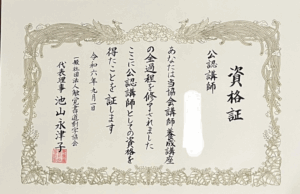 資格証
公認講師
あなたは当協会講師養成講座
の全過程を修了されました
ここに公認講師としての資格を
得たことを証します
令和六年九月一日
一般社団法人
代表理事 池山永津子